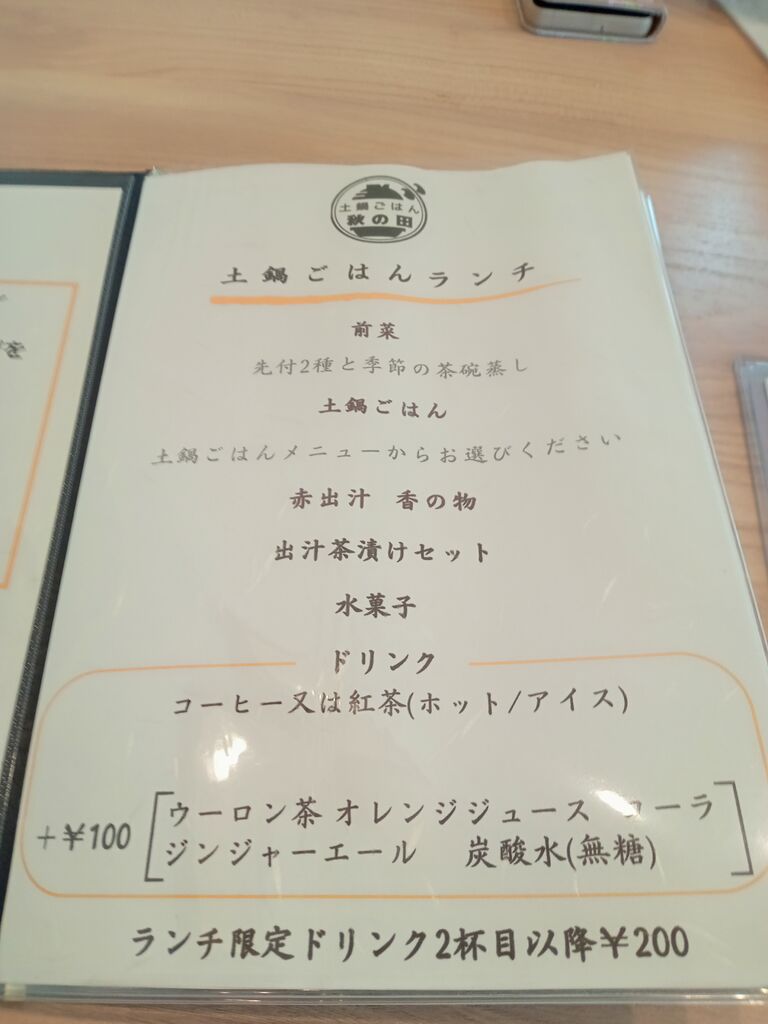 土鍋ごはん
秋の田
土鍋ごはんランチ
前菜
先付2種と季節の茶碗蒸し
土鍋ごはん
土鍋ごはんメニューからお選びください
赤出汁 香の物
出汁茶漬けセット
水菓子
ドリンク
コーヒー又は紅茶(ホット/アイス)
+¥100
ウーロン茶 オレンジジュース コーラ
ジンジャーエール 炭酸水(無糖)
ランチ限定ドリンク2杯目以降¥200
を